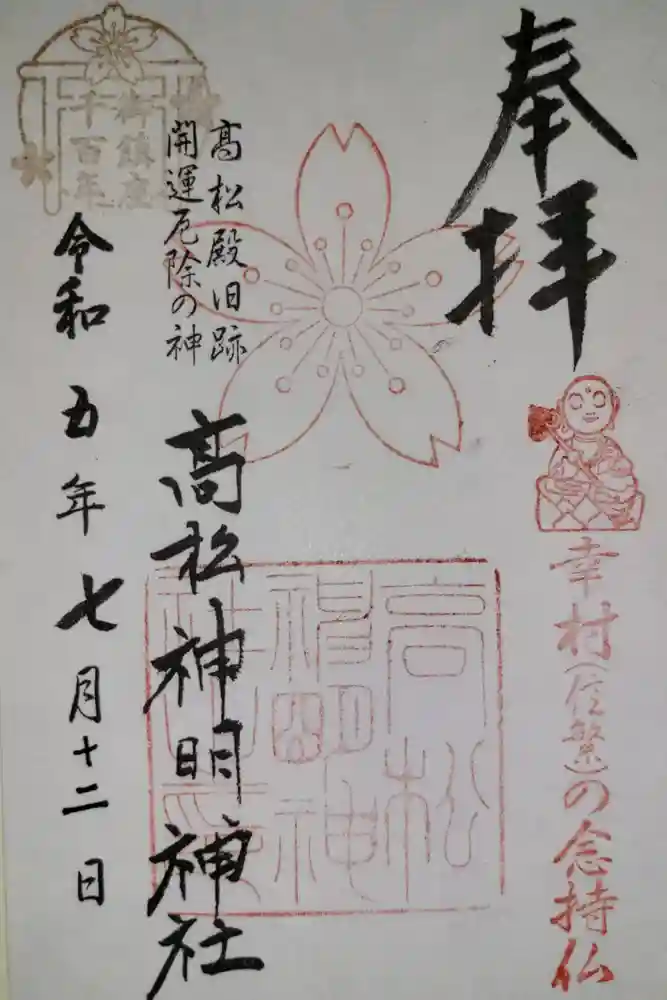 奉拝
幸村(信繁)の念持仏
高松殿旧跡
開運厄除の神
高松神明神社
高松
神明神
社
御鎮座
千百年
令和五年七月十二日